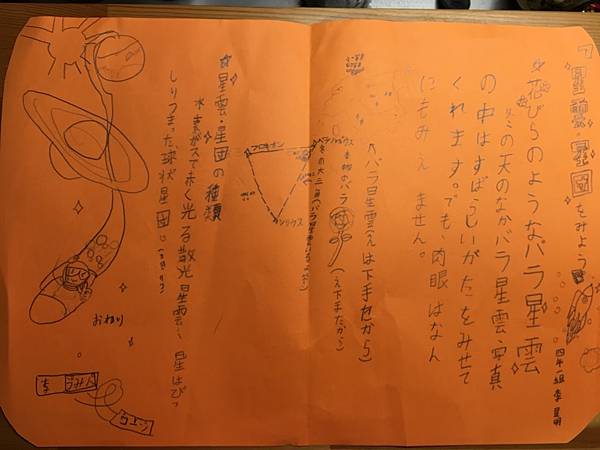 「星雲・星団をみよう」
四年一組 李昱明
☆花びらのようなバラ星雲
冬の天のなかバラ星雲、写真
の中はすばらしいがたをみせて
くれます。でも、肉眼はなん
にもみえません。
↑バラ星雲(えは下手だから)
本物のバラ
(え下手だから)
プロキオン
シリウス
☆星雲・星団の種類
水素がスで赤く光る散光星雲、星はびっ
しりつまった球状星団。
おわり